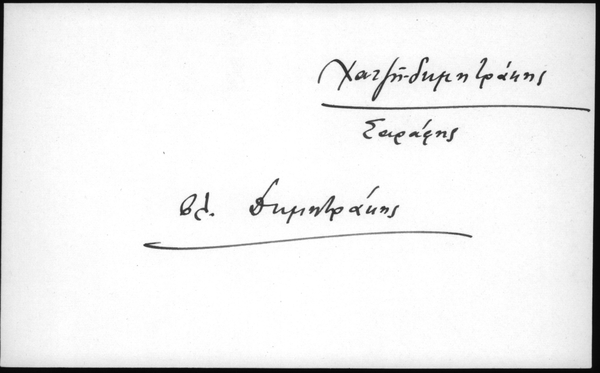 Χατζῆ-δημητράκης
Σαράφης
βλ. Δημητράκης